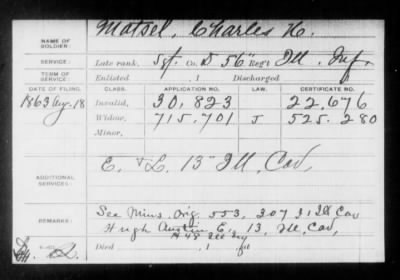 NAME OF SOLDIER: Matsel, Charles H.
SERVICE: Late rank, Sgt. Co. D 56" Reg't Ill. Inf.
TERM OF SERVICE: Enlisted , 1 Discharged , 1
DATE OF FILING. CLASS. APPLICATION NO. LAW. CERTIFICATE NO.
1863 Aug. 18 Invalid, 30,823 22,676
Widow, 715.701 J 525.280
Minor,
ADDITIONAL SERVICES: E. & L. 13" Ill. Cav,
REMARKS: See Mins. Orig. 553, 307 Ill Cav
Hugh Austin E, 13, Ill, Cav,
48 Ill
Died , 1 , at